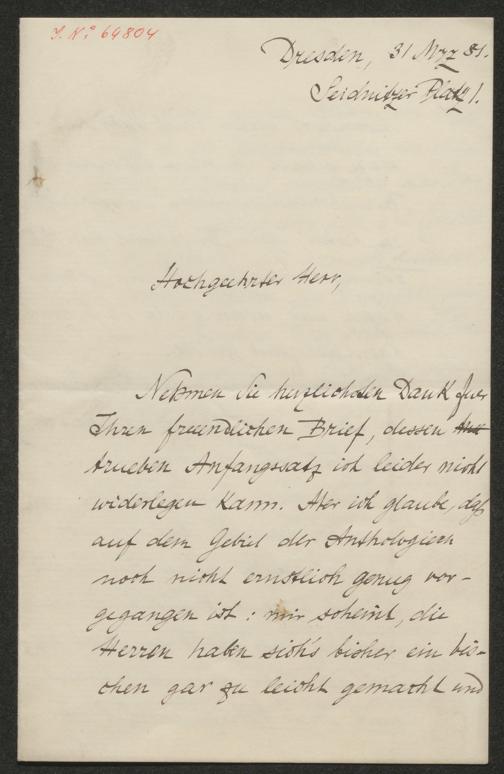 J. N.° 64804
Dresden, 31 Mrz 81.
Seidnitzer Platz 1.
Hochgeehrter Herr,
Nehmen Sie herzlichsten Dank fuer
Ihren freundlichen Brief, dessen
trueben Anfangssatz ich leider nicht
widerlegen kann. Aber ich glaube, daß
auf dem Gebiet der Anthologieen
noch nicht ernstlich genug vor-
gegangen ist: mir scheint, die
Herren haben sich's bisher ein bis-
chen gar zu leicht gemacht und